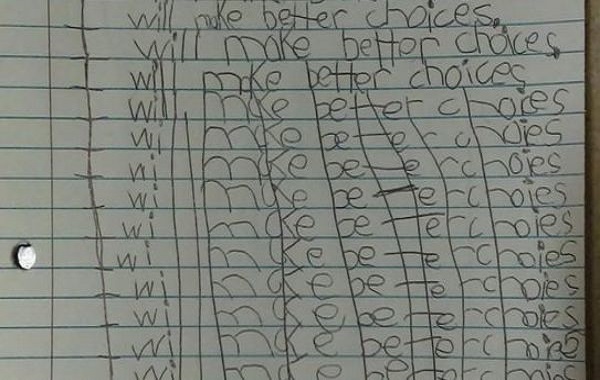 I will make better choices.
I will make better choices.
I will make better choices
I will make better choies
I will make better choies
I will make better choies
I will make better choies
I will make better choies
I will make better choies
I will make better choies
I will make better choies
I will make better choies
I will make better choies